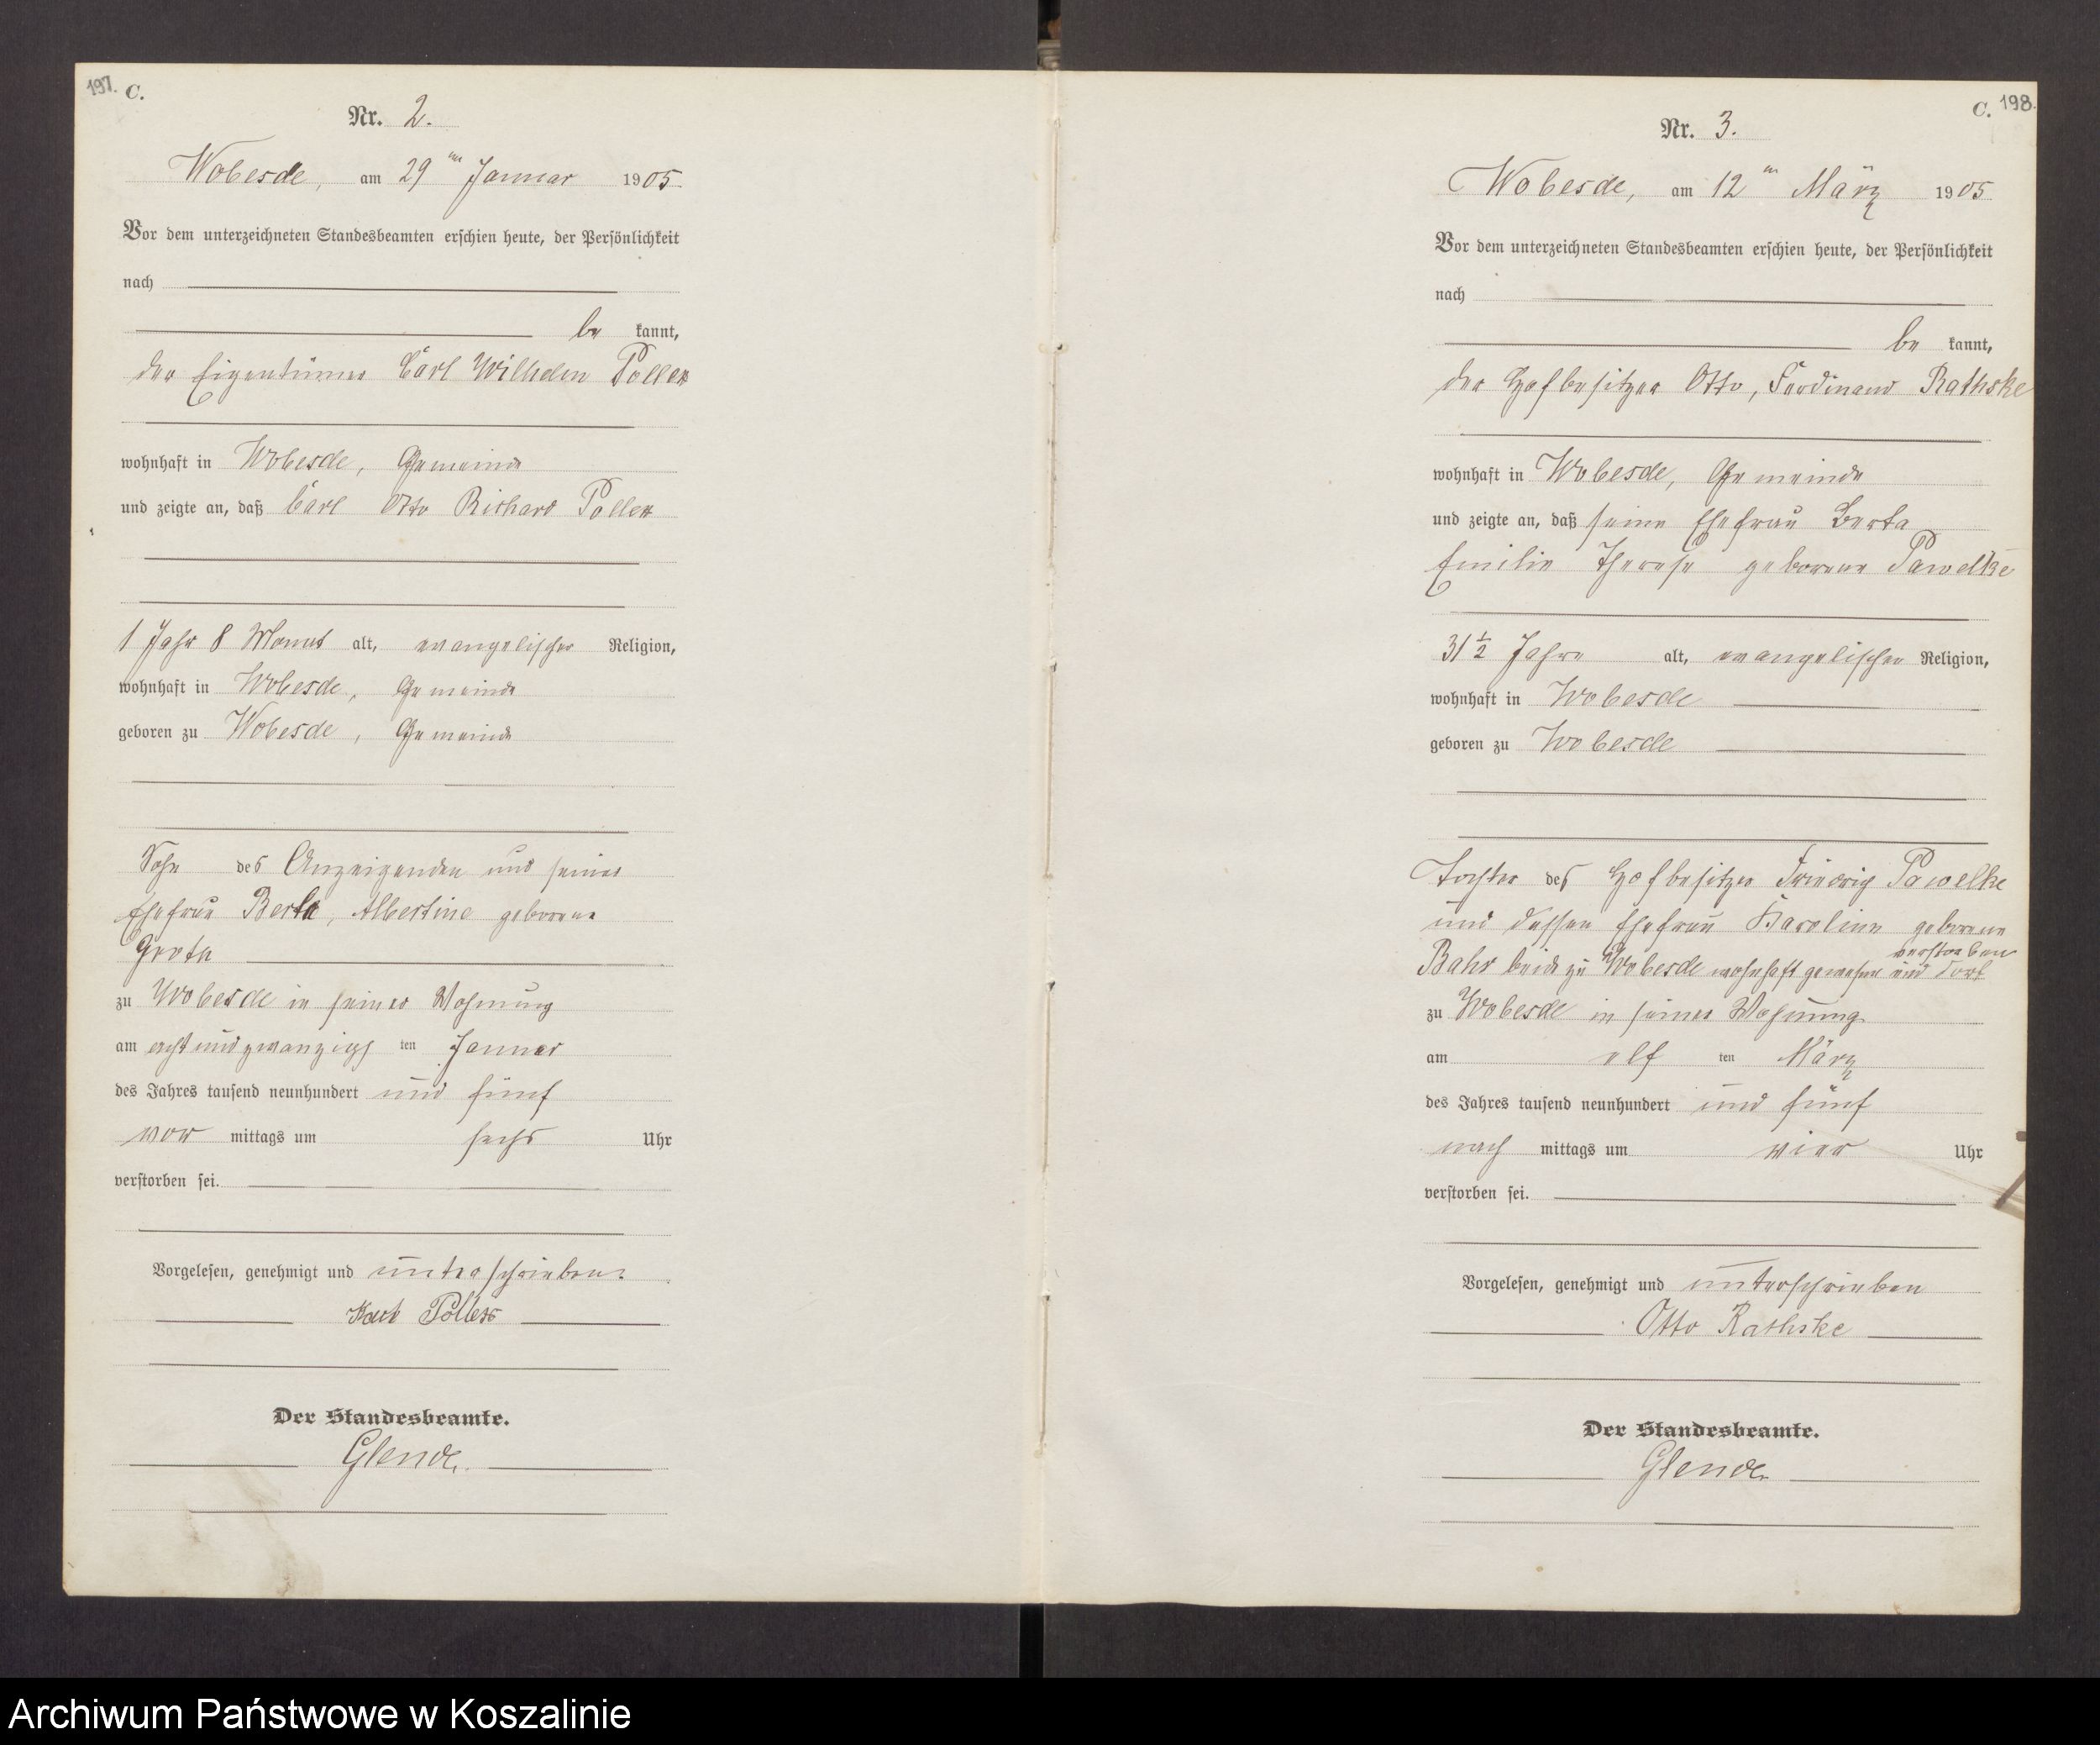 197. C.
Nr. 2.
Wobesde, am 29ten Januar 1905.
Vor dem unterzeichneten Standesbeamten erschien heute, der Persönlichkeit
nach
be kannt,
der Eigentümer Carl Wilhelm Poller
wohnhaft in Wobesde, Gemeinde
und zeigte an, daß Carl Otto Richard Poller
1 Jahr 8 Monat alt, evangelischer Religion,
wohnhaft in Wobesde, Gemeinde
geboren zu Wobesde, Gemeinde
Sohn des Anzeigenden und seiner
Ehefrau Berta, Albertine geborene
Groth
zu Wobesde in seiner Wohnung
am achtundzwanzigs ten Januar
des Jahres tausend neunhundert und fünf
vor mittags um sechs Uhr
verstorben sei.
Vorgelesen, genehmigt und unterschrieben.
Poller
Der Standesbeamte.
Glende.
C. 198.
Nr. 3.
Wobesde, am 12ten März 1905
Vor dem unterzeichneten Standesbeamten erschien heute, der Persönlichkeit
nach
be kannt,
der Hofbesitzer Otto, Ferdinand Rathske
wohnhaft in Wobesde, Gemeinde
und zeigte an, daß seine Ehefrau Berta
Emilie Therese geborene Pawelke
31 1/2 Jahre alt, evangelischer Religion,
wohnhaft in Wobesde
geboren zu Wobesde
Tochter des Hofbesitzer Friedrig Pawelke
und dessen Ehefrau Karoline geborene
verstorben
Bahr beide zu Wobesde wohnhaft gewesen und dort
zu Wobesde in seiner Wohnung
am elf ten März
des Jahres tausend neunhundert und fünf
nach mittags um vier Uhr
verstorben sei.
Vorgelesen, genehmigt und unterschrieben
Otto Rathske
Der Standesbeamte.
Glende
Archiwum Państwowe w Koszalinie